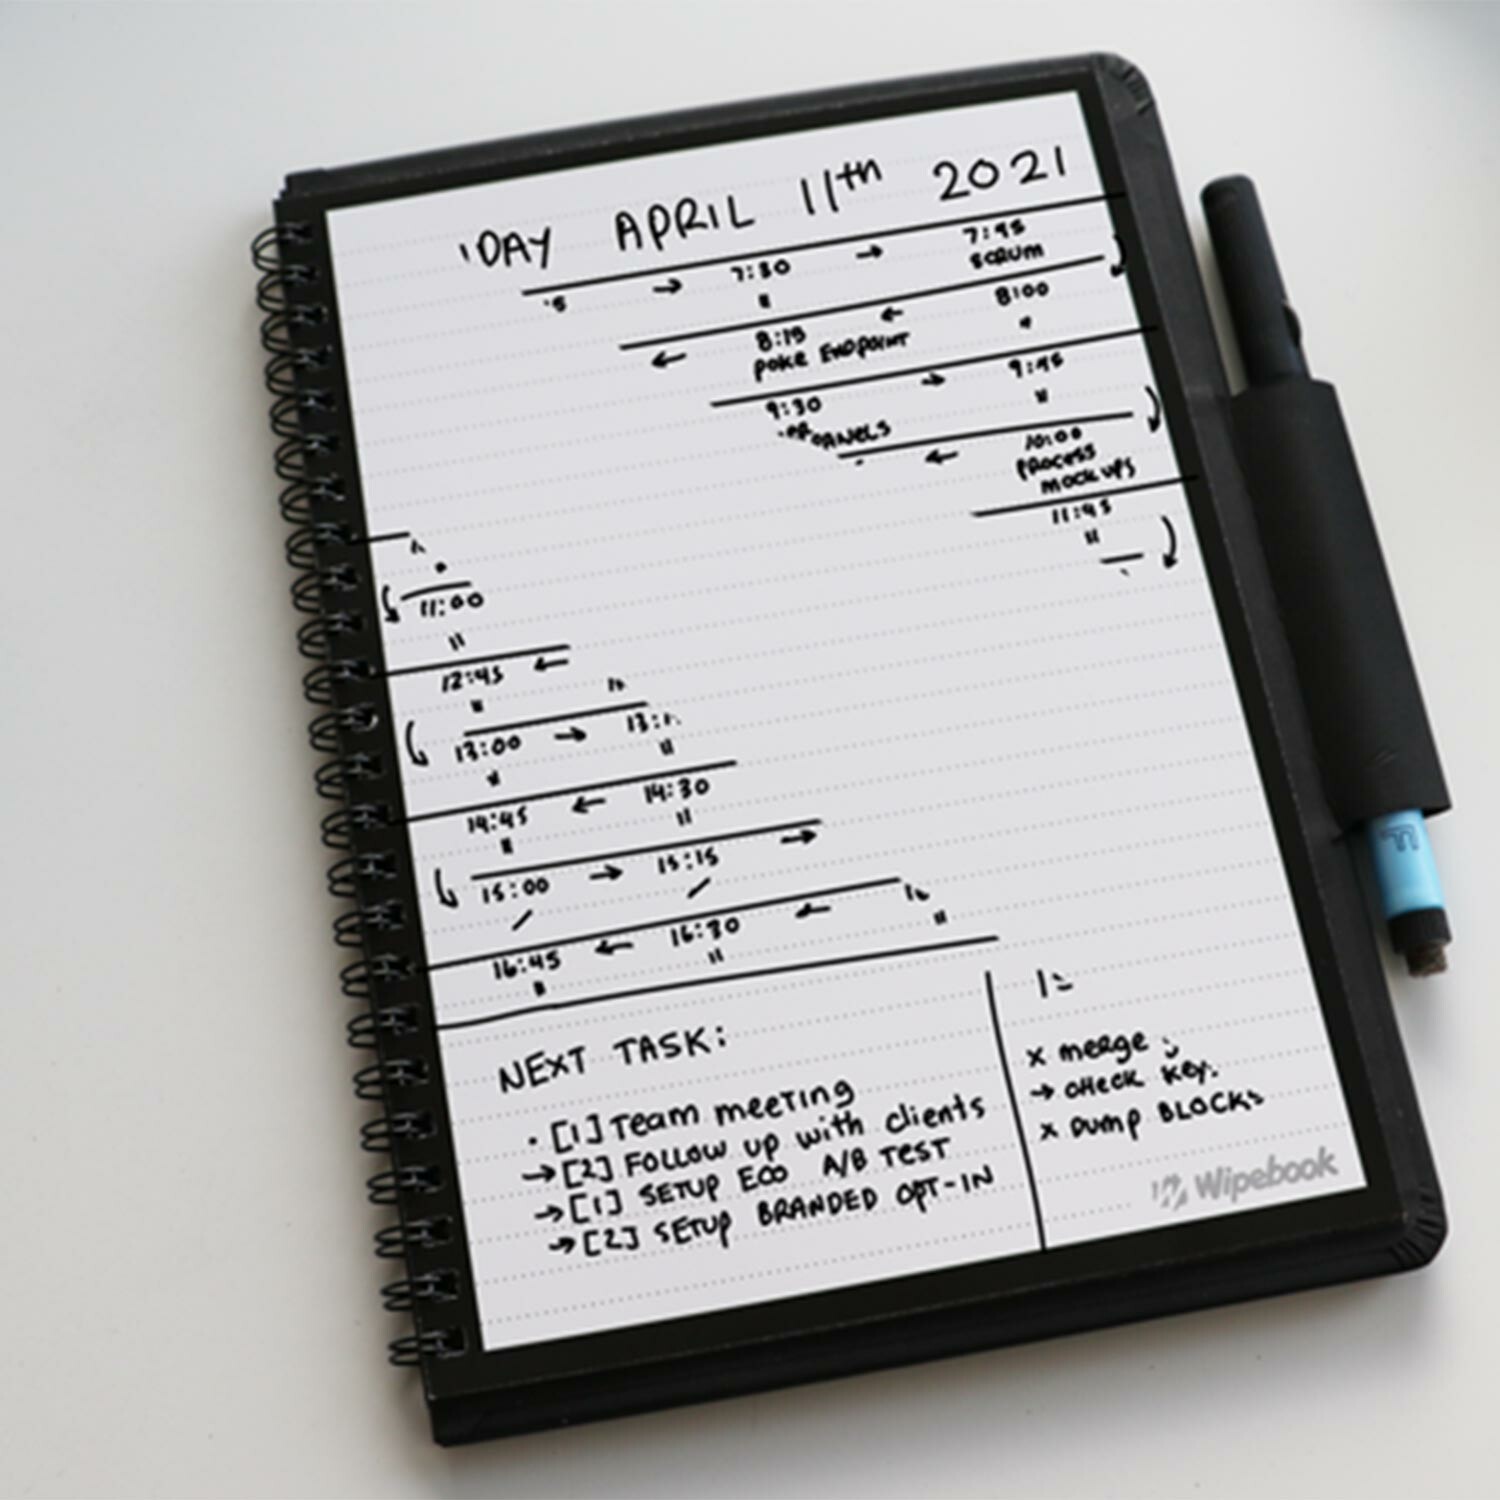 'DAY APRIL 11th 2021
→ 7:30 → 7:45
" SCRUM
← 8:15 ← 8:00
POKE ENDPOINT "
9:30 → 9:45
PANELS "
← 10:00
PROCESS
MOCK UPS
11:45
"
11:00
"
12:45 ←
"
13:00 → 13:1
" "
14:45 ← 14:30
" "
15:00 → 15:15 →
/ /
16:45 ← 16:30 ←
" " "
NEXT TASK:
· [1] Team meeting
→ [2] FOLLOW UP WITH clients
→ [1] SETUP ECO A/B TEST
→ [2] SETUP BRANDED OPT-IN
x merge
→ CHECK KEY
x DUMP BLOCKS
Wipebook